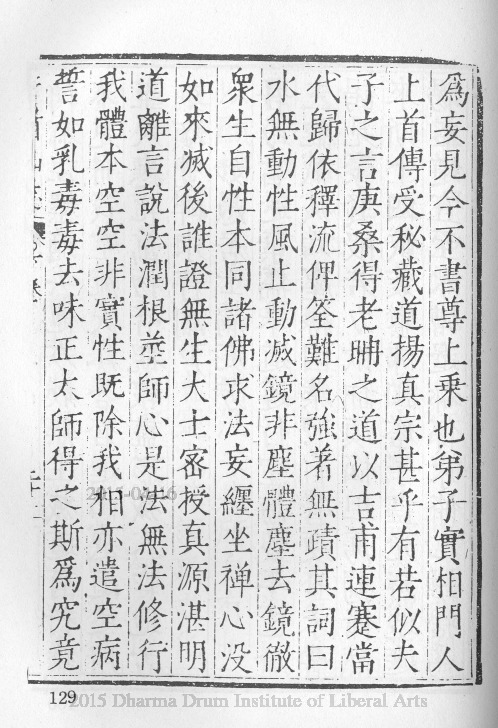 爲妄見今不書尊上乗也弟子實相門人
上首傳受秘藏道揚真宗甚乎有若似夫
子之言庚桑得老聃之道以吉甫連蹇當
代歸依釋流俾筌難名強著無蹟其詞曰
水無動性風止動滅鏡非塵體塵去鏡徹
衆生自性本同諸佛求法妄纒坐禅心没
如來滅後誰證無生大士密授真源湛明
道離言說法潤根莖師心是法無法修行
我體本空空非實性既除我相亦遣空病
誓如乳毒毒去味正太師得之斯爲究竟
129
2015 Dharma Drum Institute of Liberal Arts